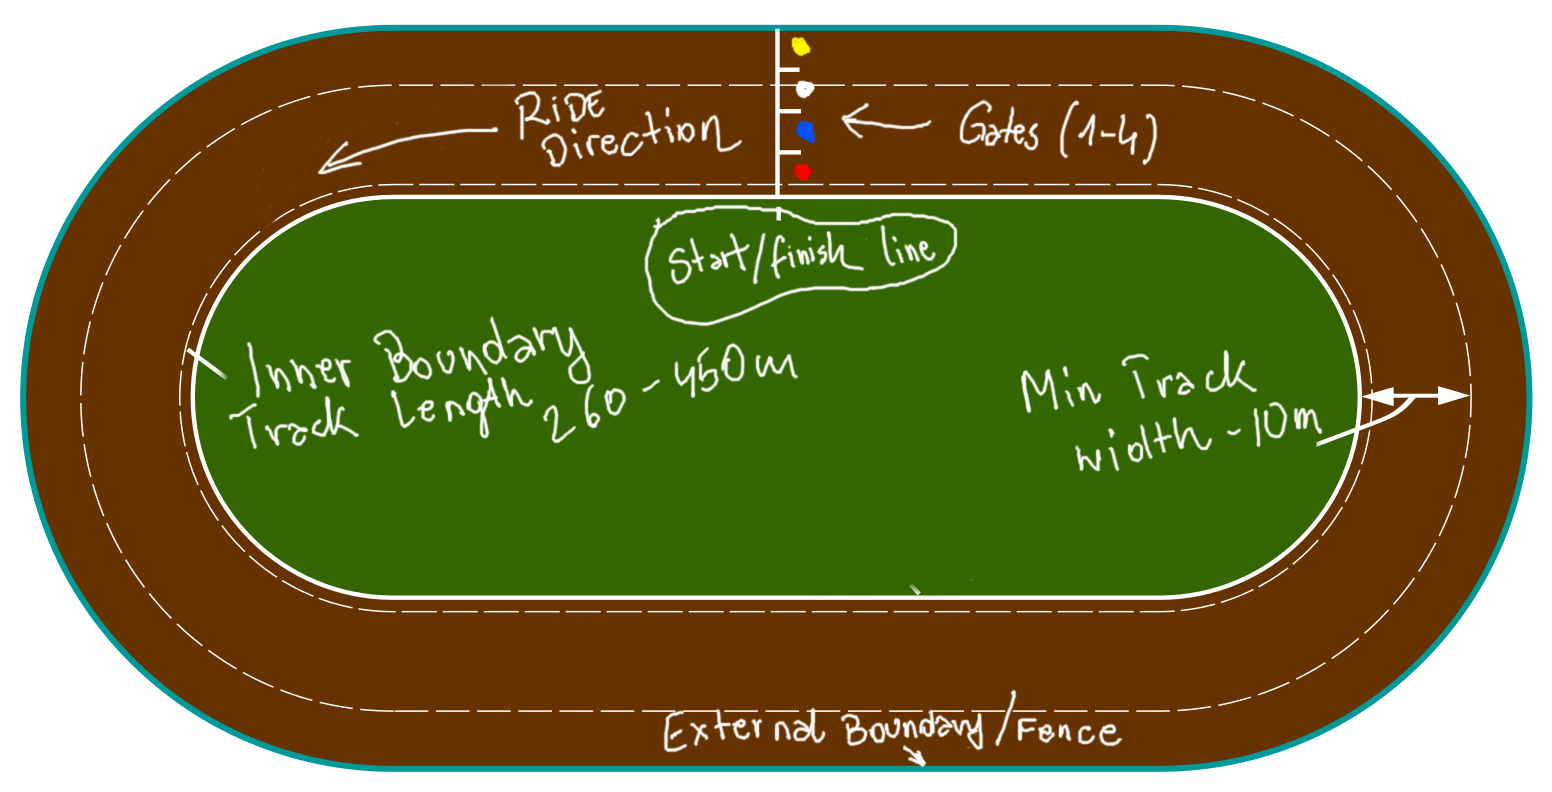 RiDE
Direction
Gates (1-4)
Start/finish line
Inner Boundary
Track Length 260 - 450m
Min Track
width - 10m
External Boundary/Fence